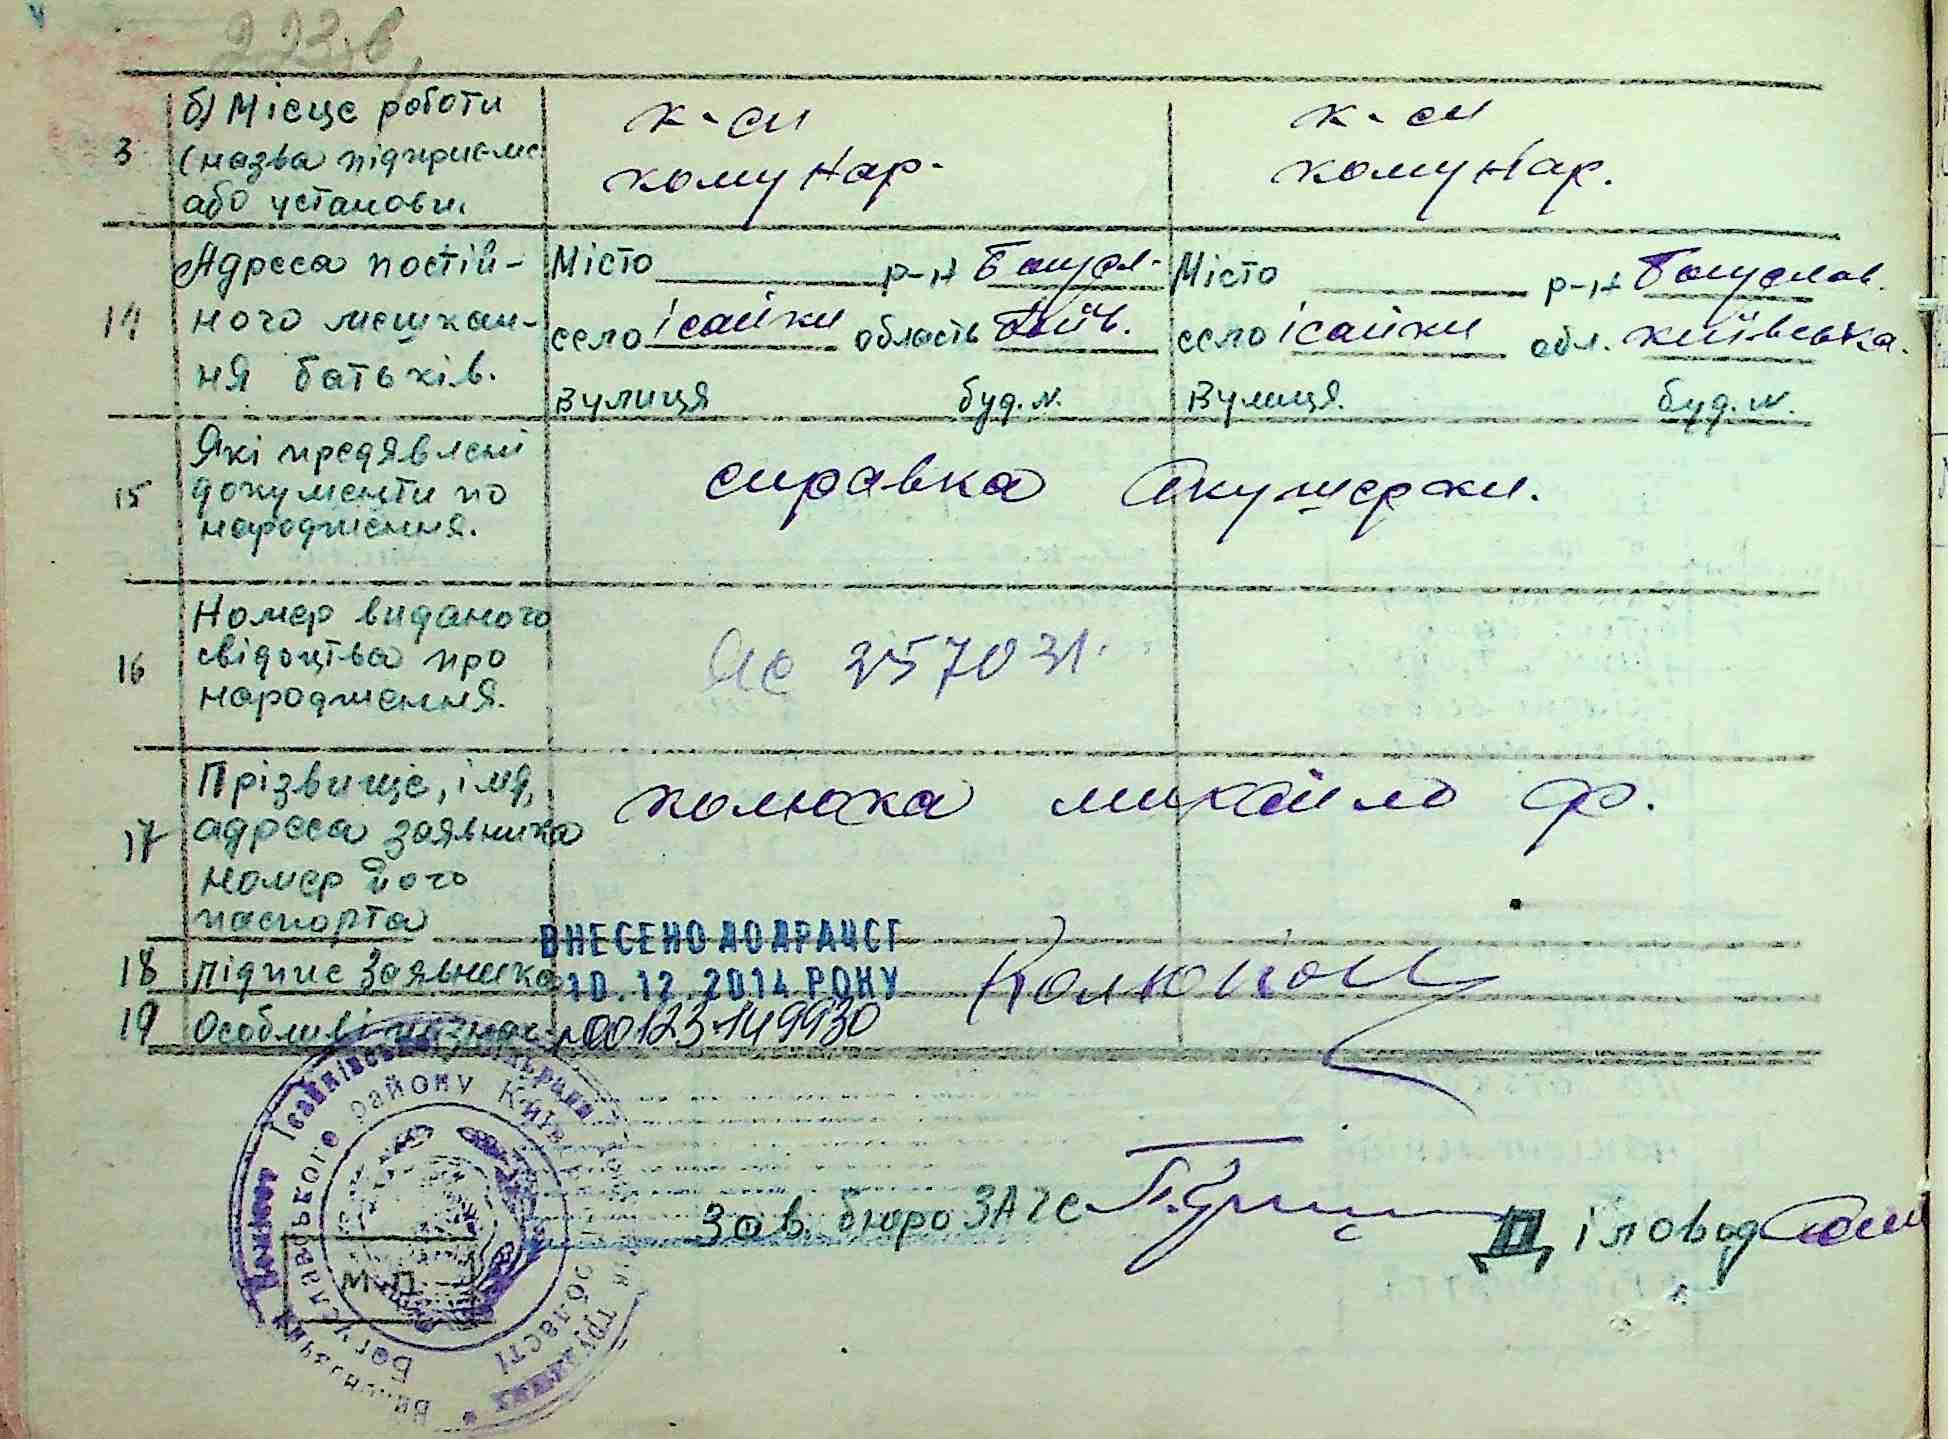 223 зв
б) Місце роботи
3 (назва підприємс
або установи.
к-сп
комунар.
к-сп
комунар.
14 Адреса постій-
ного мешкан-
ня батьків.
Місто р-н Богусл.
село Ісайки область Київ.
вулиця буд. N.
Місто р-н Богуслав.
село Ісайки обл. Київська.
вулиця. буд. N.
15 Які предявлені
документи по
народження.
справка Акушерки.
16 Номер виданого
свідоцтва про
народження.
ЯС 257031.
17 Прізвище, імя,
адреса заявника
номер його
паспорта
Колюка Михайло Ф.
ВНЕСЕНО ДО ДРАЦСГ
18 підпис заявника 10.12.2014 РОКУ
19 Особливі 00123149930
Зав. бюро ЗАГС Діловод
М П
Виконавчий Комітет Ісайківської сільради трудящих
Богуславського району Київської області